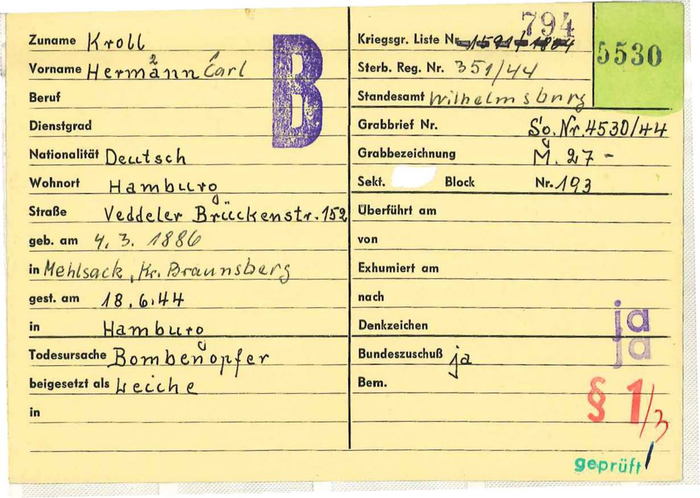 Zuname Kroll
Vorname Hermann Carl
2 1
Beruf
Dienstgrad
Nationalität Deutsch
Wohnort Hamburg
Straße Veddeler Brückenstr. 152
geb. am 4. 3. 1886
in Mehlsack, Kr. Braunsberg
gest. am 18.6.44
in Hamburg
Todesursache Bombenopfer
beigesetzt als Leiche
in
B
794
Kriegsgr. Liste Nr.
5530
Sterb. Reg. Nr. 351/44
Standesamt Wilhelmsburg
Grabbrief Nr. So. Nr. 4530/44
Grabbezeichnung M. 27 -
Sekt. Block Nr. 193
Überführt am
von
Exhumiert am
nach
Denkzeichen ja
ja
Bundeszuschuß ja
Bem.
§ 1/3
geprüft